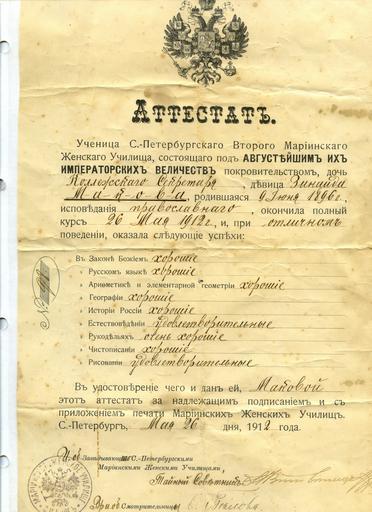 АТТЕСТАТЪ.
Ученица С.-Петербургскаго Второго Маріинскаго
Женскаго Училища, состоящаго подъ АВГУСТѢЙШИМЪ ИХЪ
ИМПЕРАТОРСКИХЪ ВЕЛИЧЕСТВЪ покровительствомъ, дочь
Коллежскаго Секретаря, дѣвица Зинаида
родившаяся 9 Іюня 1896 г.
исповѣданія православнаго, окончила полный
курсъ 26 Мая 1912 г. и, при отличномъ
поведеніи, оказала слѣдующіе успѣхи:
Въ Законѣ Божіемъ хорошіе
» Русскомъ языкѣ хорошіе
» Ариѳметикѣ и элементарной геометріи хорошіе
» Географіи хорошіе
» Исторіи Россіи хорошіе
» Естествовѣдѣніи удовлетворительные
» Рукодѣльяхъ очень хорошіе
» Чистописаніи хорошіе
» Рисованіи удовлетворительные
Въ удостовѣреніе чего и данъ ей,
этотъ аттестатъ за надлежащимъ подписаніемъ и съ
приложеніемъ печати Маріинскихъ Женскихъ Училищъ.
С.-Петербургъ, Мая 26 дня, 1912 года.
Завѣдывающаго С.-Петербургскими
Маріинскими Женскими Училищами,
Тайный Совѣтникъ